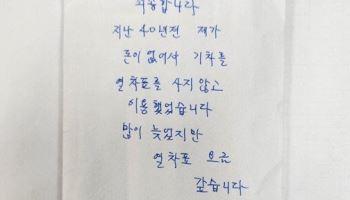 죄송합니다
지난 40년전 제가
돈이 없어서 기차를
열차표를 사지 않고
이용했었습니다
많이 늦었지만
열차표 요금
갚습니다